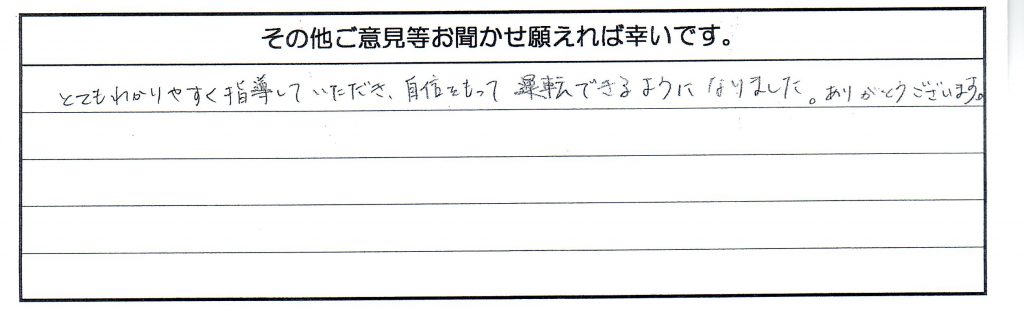 その他ご意見等お聞かせ願えれば幸いです。
とてもわかりやすく指導していただき、自信をもって運転できるようになりました。ありがとうございます。